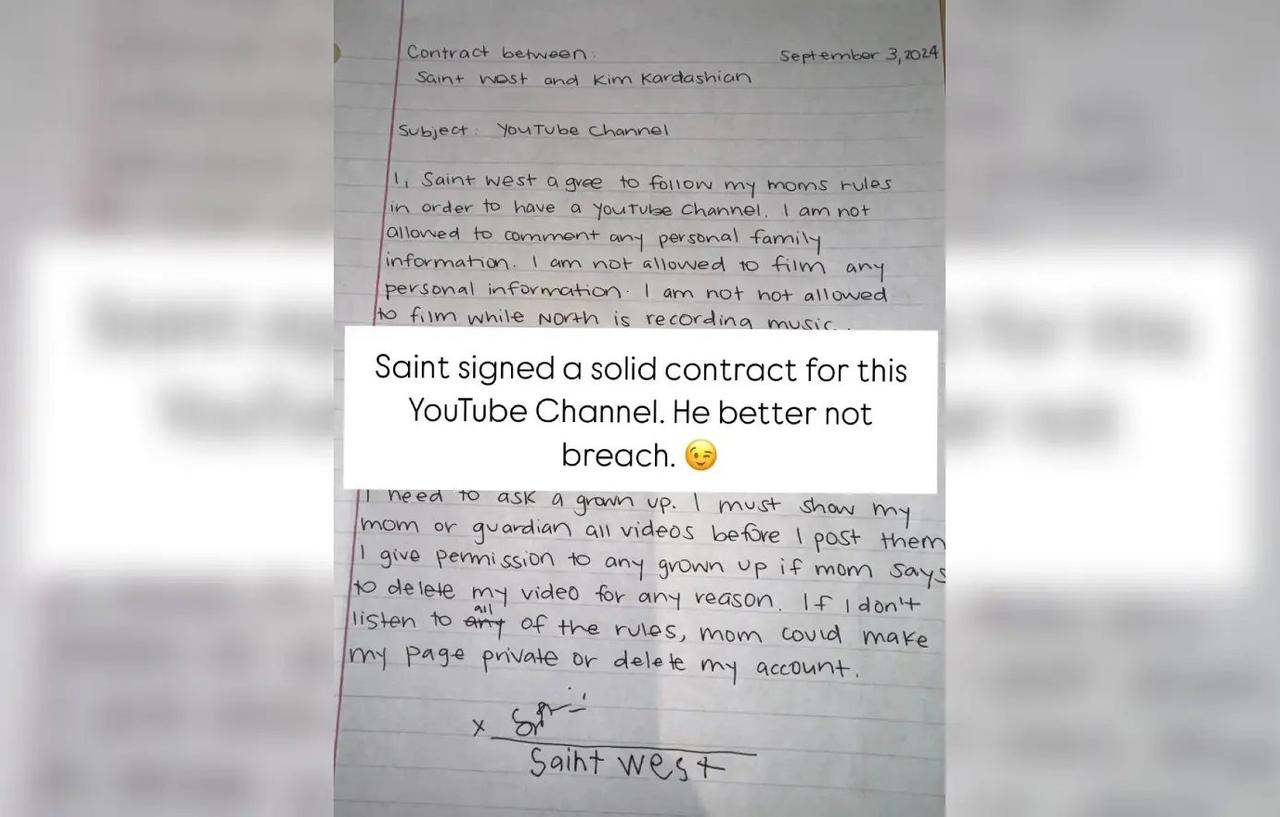 Contract between:
September 3, 2024
Saint West and Kim Kardashian
Subject: YouTube Channel
I, Saint West agree to follow my moms rules
in order to have a YouTube Channel. I am not
allowed to comment any personal family
information. I am not allowed to film any
personal information. I am not not allowed
to film while North is recording music.
Saint signed a solid contract for this
YouTube Channel. He better not
breach. 😉
I need to ask a grown up. I must show my
mom or guardian all videos before I post them
I give permission to any grown up if mom says
to delete my video for any reason. If I don't
listen to any all of the rules, mom could make
my page private or delete my account.
x
Saint West